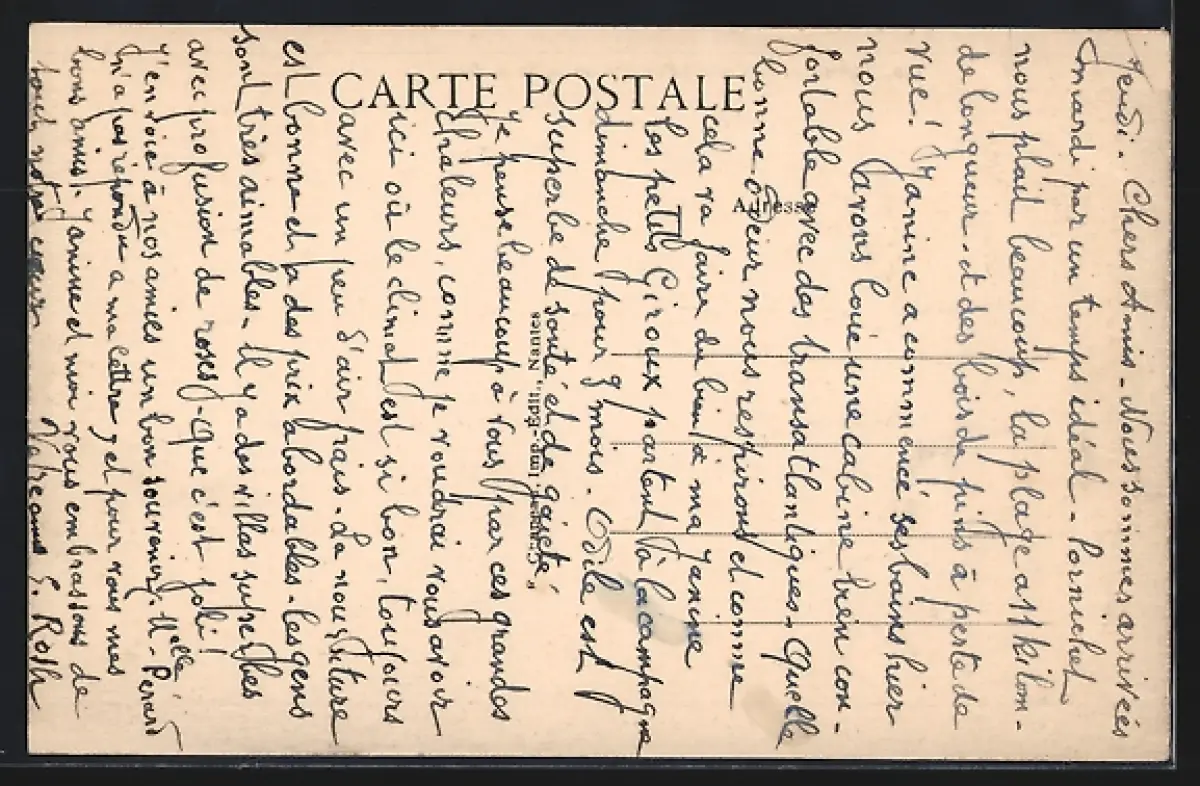 CARTE POSTALE
Adresse
Imp.-Édit., Nantes
Jeudi. Chers Amis - Nous sommes arrivées
mardi par un temps idéal - Pornichet
nous plait beaucoup, la plage a 11 kilom-
de longueur. et des bois de pins à perte de
vue! Janine a commencé ses bains hier
nous avons loué une cabine bien con-
fortable avec des transatlantiques. Quelle
bonne odeur nous respirons et comme
cela va faire du bien à ma Janine
Les petits Giroux partent à la campagne
dimanche pour 2 mois. Odile est
superbe de santé et de gaieté,
Je pense beaucoup à vous par ces grandes
chaleurs, comme je voudrai vous avoir
ici où le climat est si bon, toujours
avec un peu d'air frais. La nourriture
est bonne et a des prix abordables. les gens
sont très aimables. Il y a des villas superbes
avec profusion de roses, que c'est joli!
J'envoie à nos amies un bon souvenir. Melle Penard
n'a pas répondu a ma lettre, et pour vous mes
bons amis. Janine et moi vous embrassons de
tout notre cœur
E. Roth